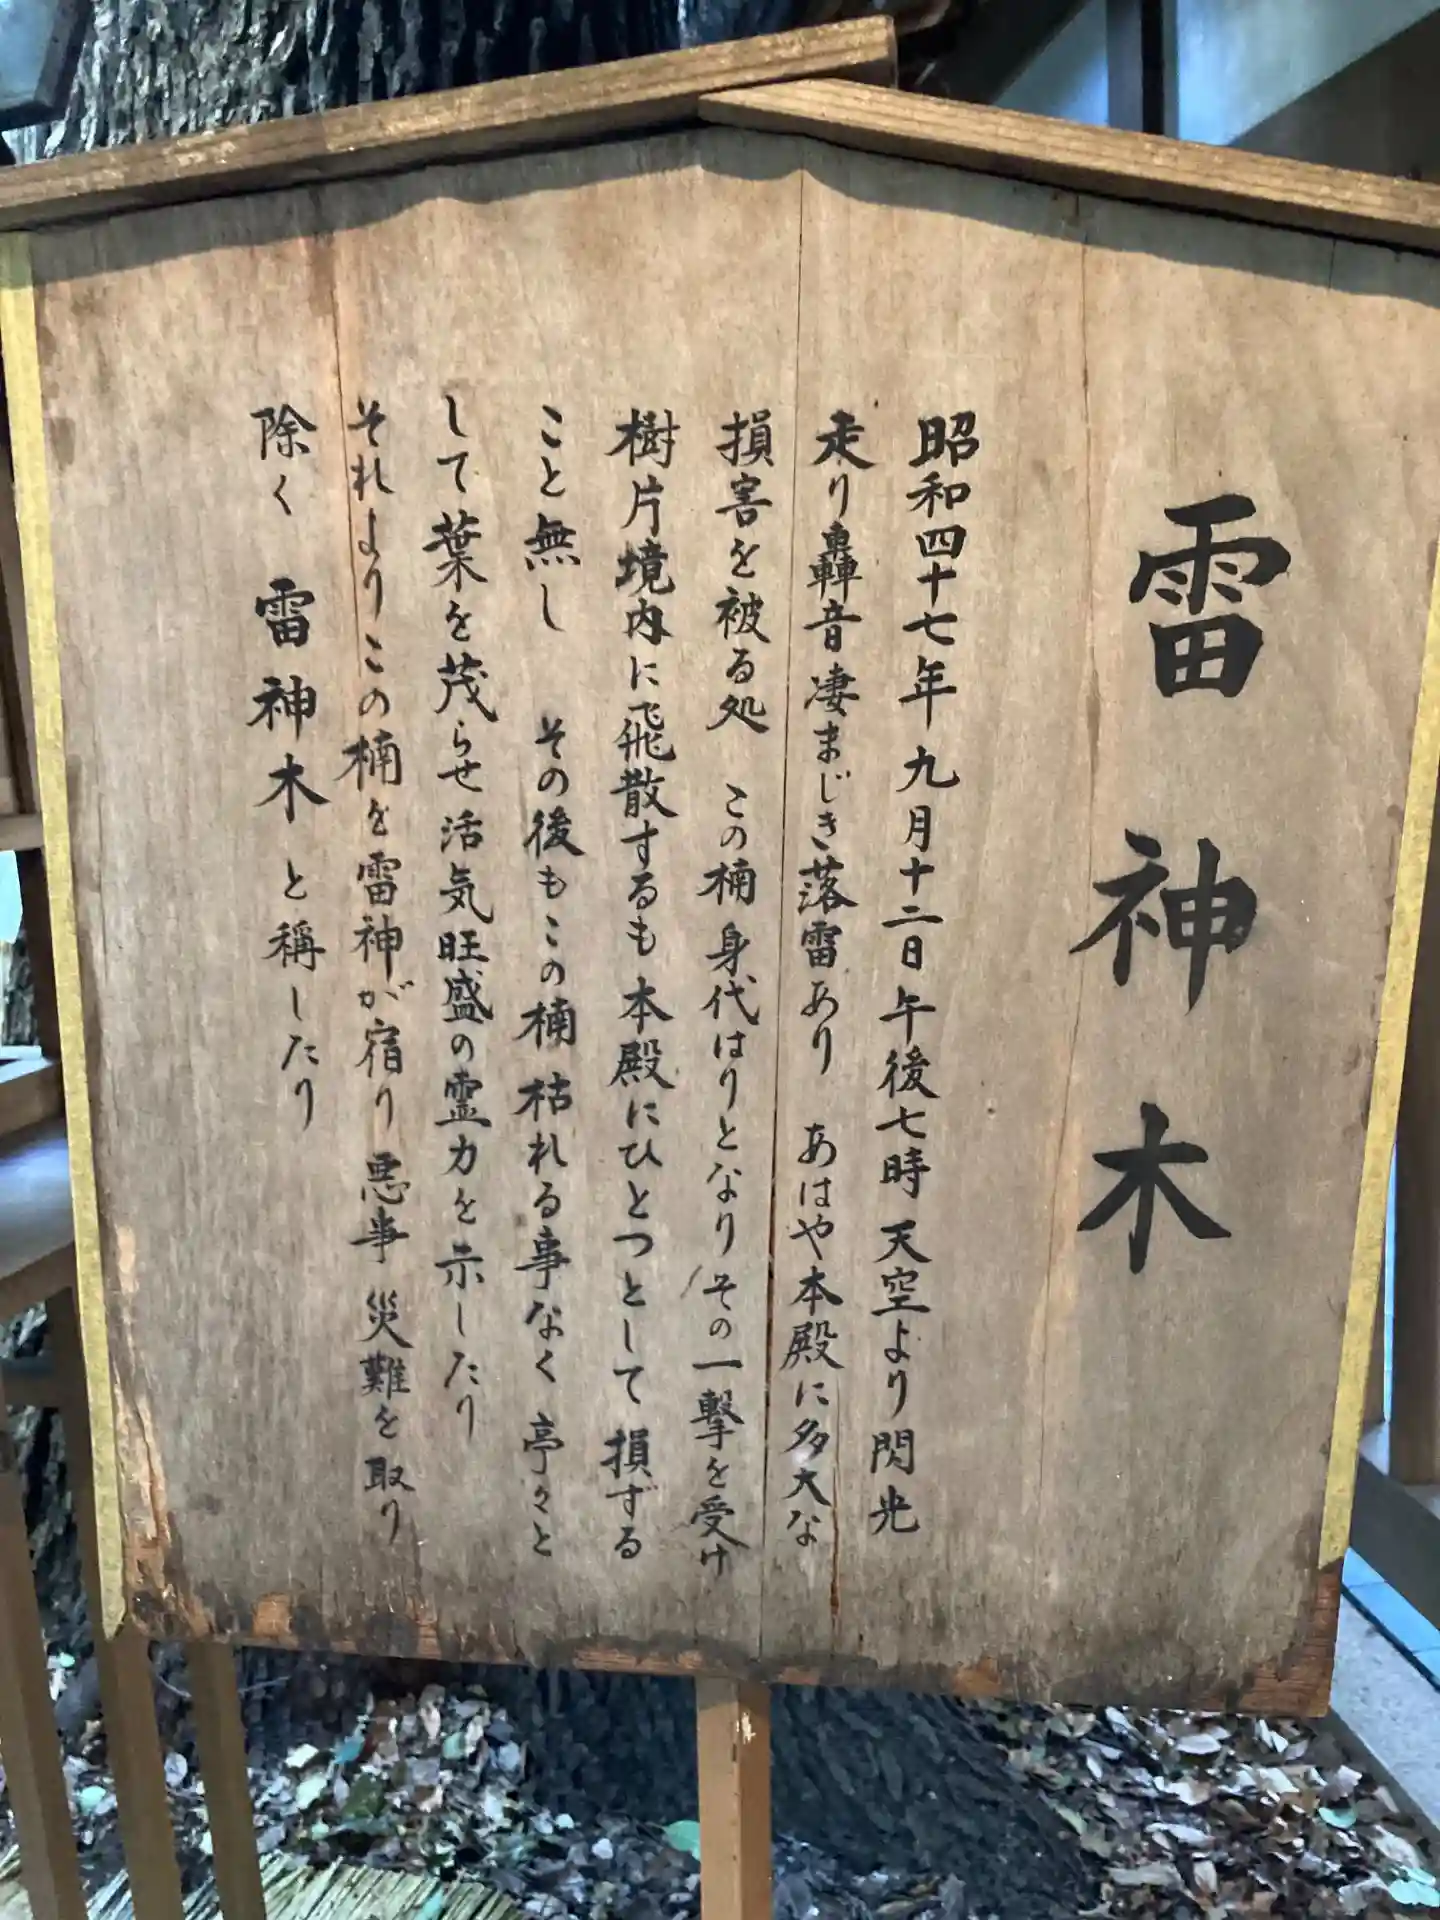 雷神木
昭和四十七年九月十二日午後七時天空より閃光
走り轟音凄まじき落雷あり あはや本殿に多大な
損害を被る処 この楠身代はりとなり その一撃を受け
樹片境内に飛散するも本殿にひとつとして損ずる
こと無し その後もこの楠枯れる事なく亭々と
して葉を茂らせ活気旺盛の霊力を示したり
それよりこの楠を雷神が宿り悪事災難を取り
除く 雷神木と稱したり